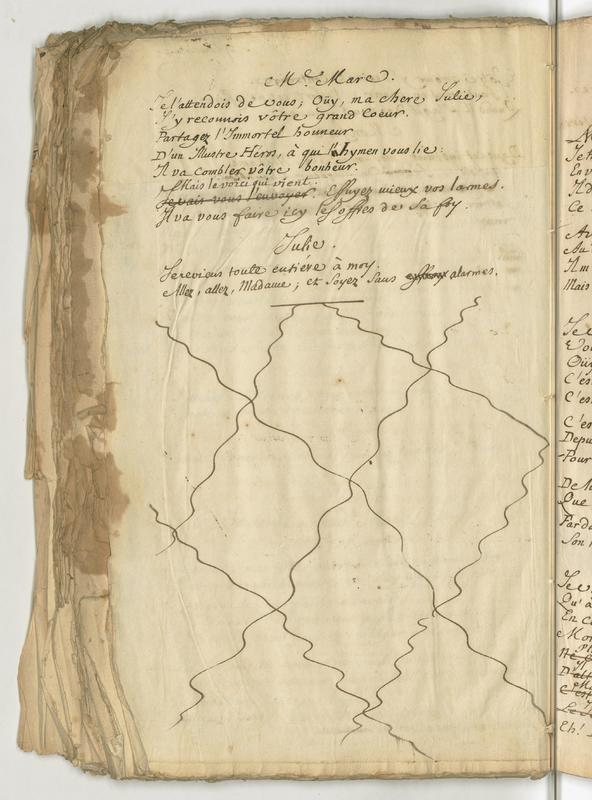 Me. Mare.
Je l'attendois de vous; Oüy, ma chere Julie,
J'y reconnois vôtre grand Coeur.
Partagez l'Immortel honneur
D'un Illustre Héros, à qui l'hymen vous lie:
Il va combler vôtre bonheur.
Mais le voici qui vient.
Je vais vous l'envoyer. Essuyez mieux vos larmes.
Il va vous faire icy les offres de sa foy.
Julie.
Je reviens toute entiére à moy.
Allez, allez, Madame; et soyez sans alarmes.
Je
C'es
C'es
Depu
Pour
Que
Son
Je
Qu'à
En
Eh!